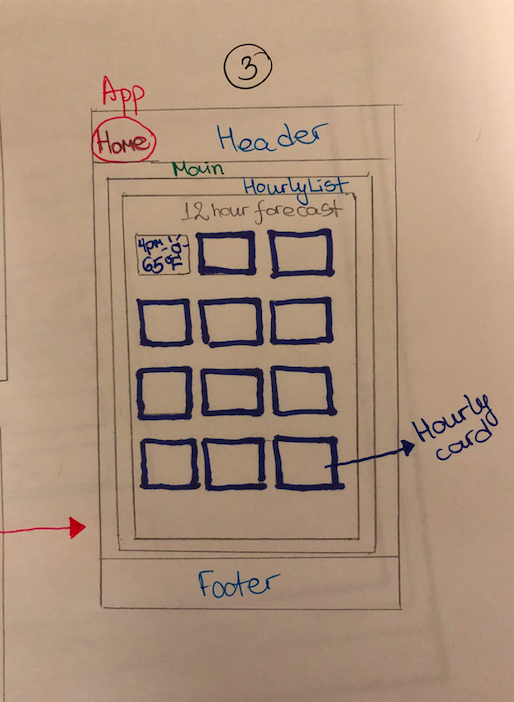 3
App
Home
Header
Main
HourlyList
12 hour forecast
4pm
65°F
Hourly
card
Footer